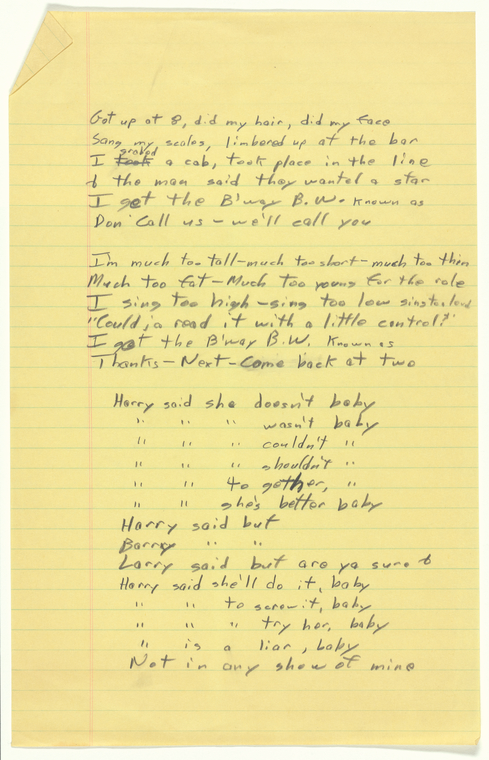 Got up at 8, did my hair, did my face
Sang my scales, limbered up at the bar
I grabed a cab, took place in the line
& the man said they wanted a star
I got the B'way B.W. Known as
Don' Call us - we'll call you
I'm much too tall - much too short - much too thin
Much too fat - Much too young for the role
I sing too high - sing too low sing too loud
"Could ja read it with a little control?"
I got the B'way B.W. Known as
Thanks - Next - Come back at two
Harry said she doesn't baby
" " " wasn't baby
" " " couldn't "
" " " shouldn't "
" " to gether, "
" " she's better baby
Harry said but
Barry " "
Larry said but are ya sure &
Harry said she'll do it, baby
" " to screw it, baby
" " " try her, baby
" is a liar, baby
Not in any show of mine